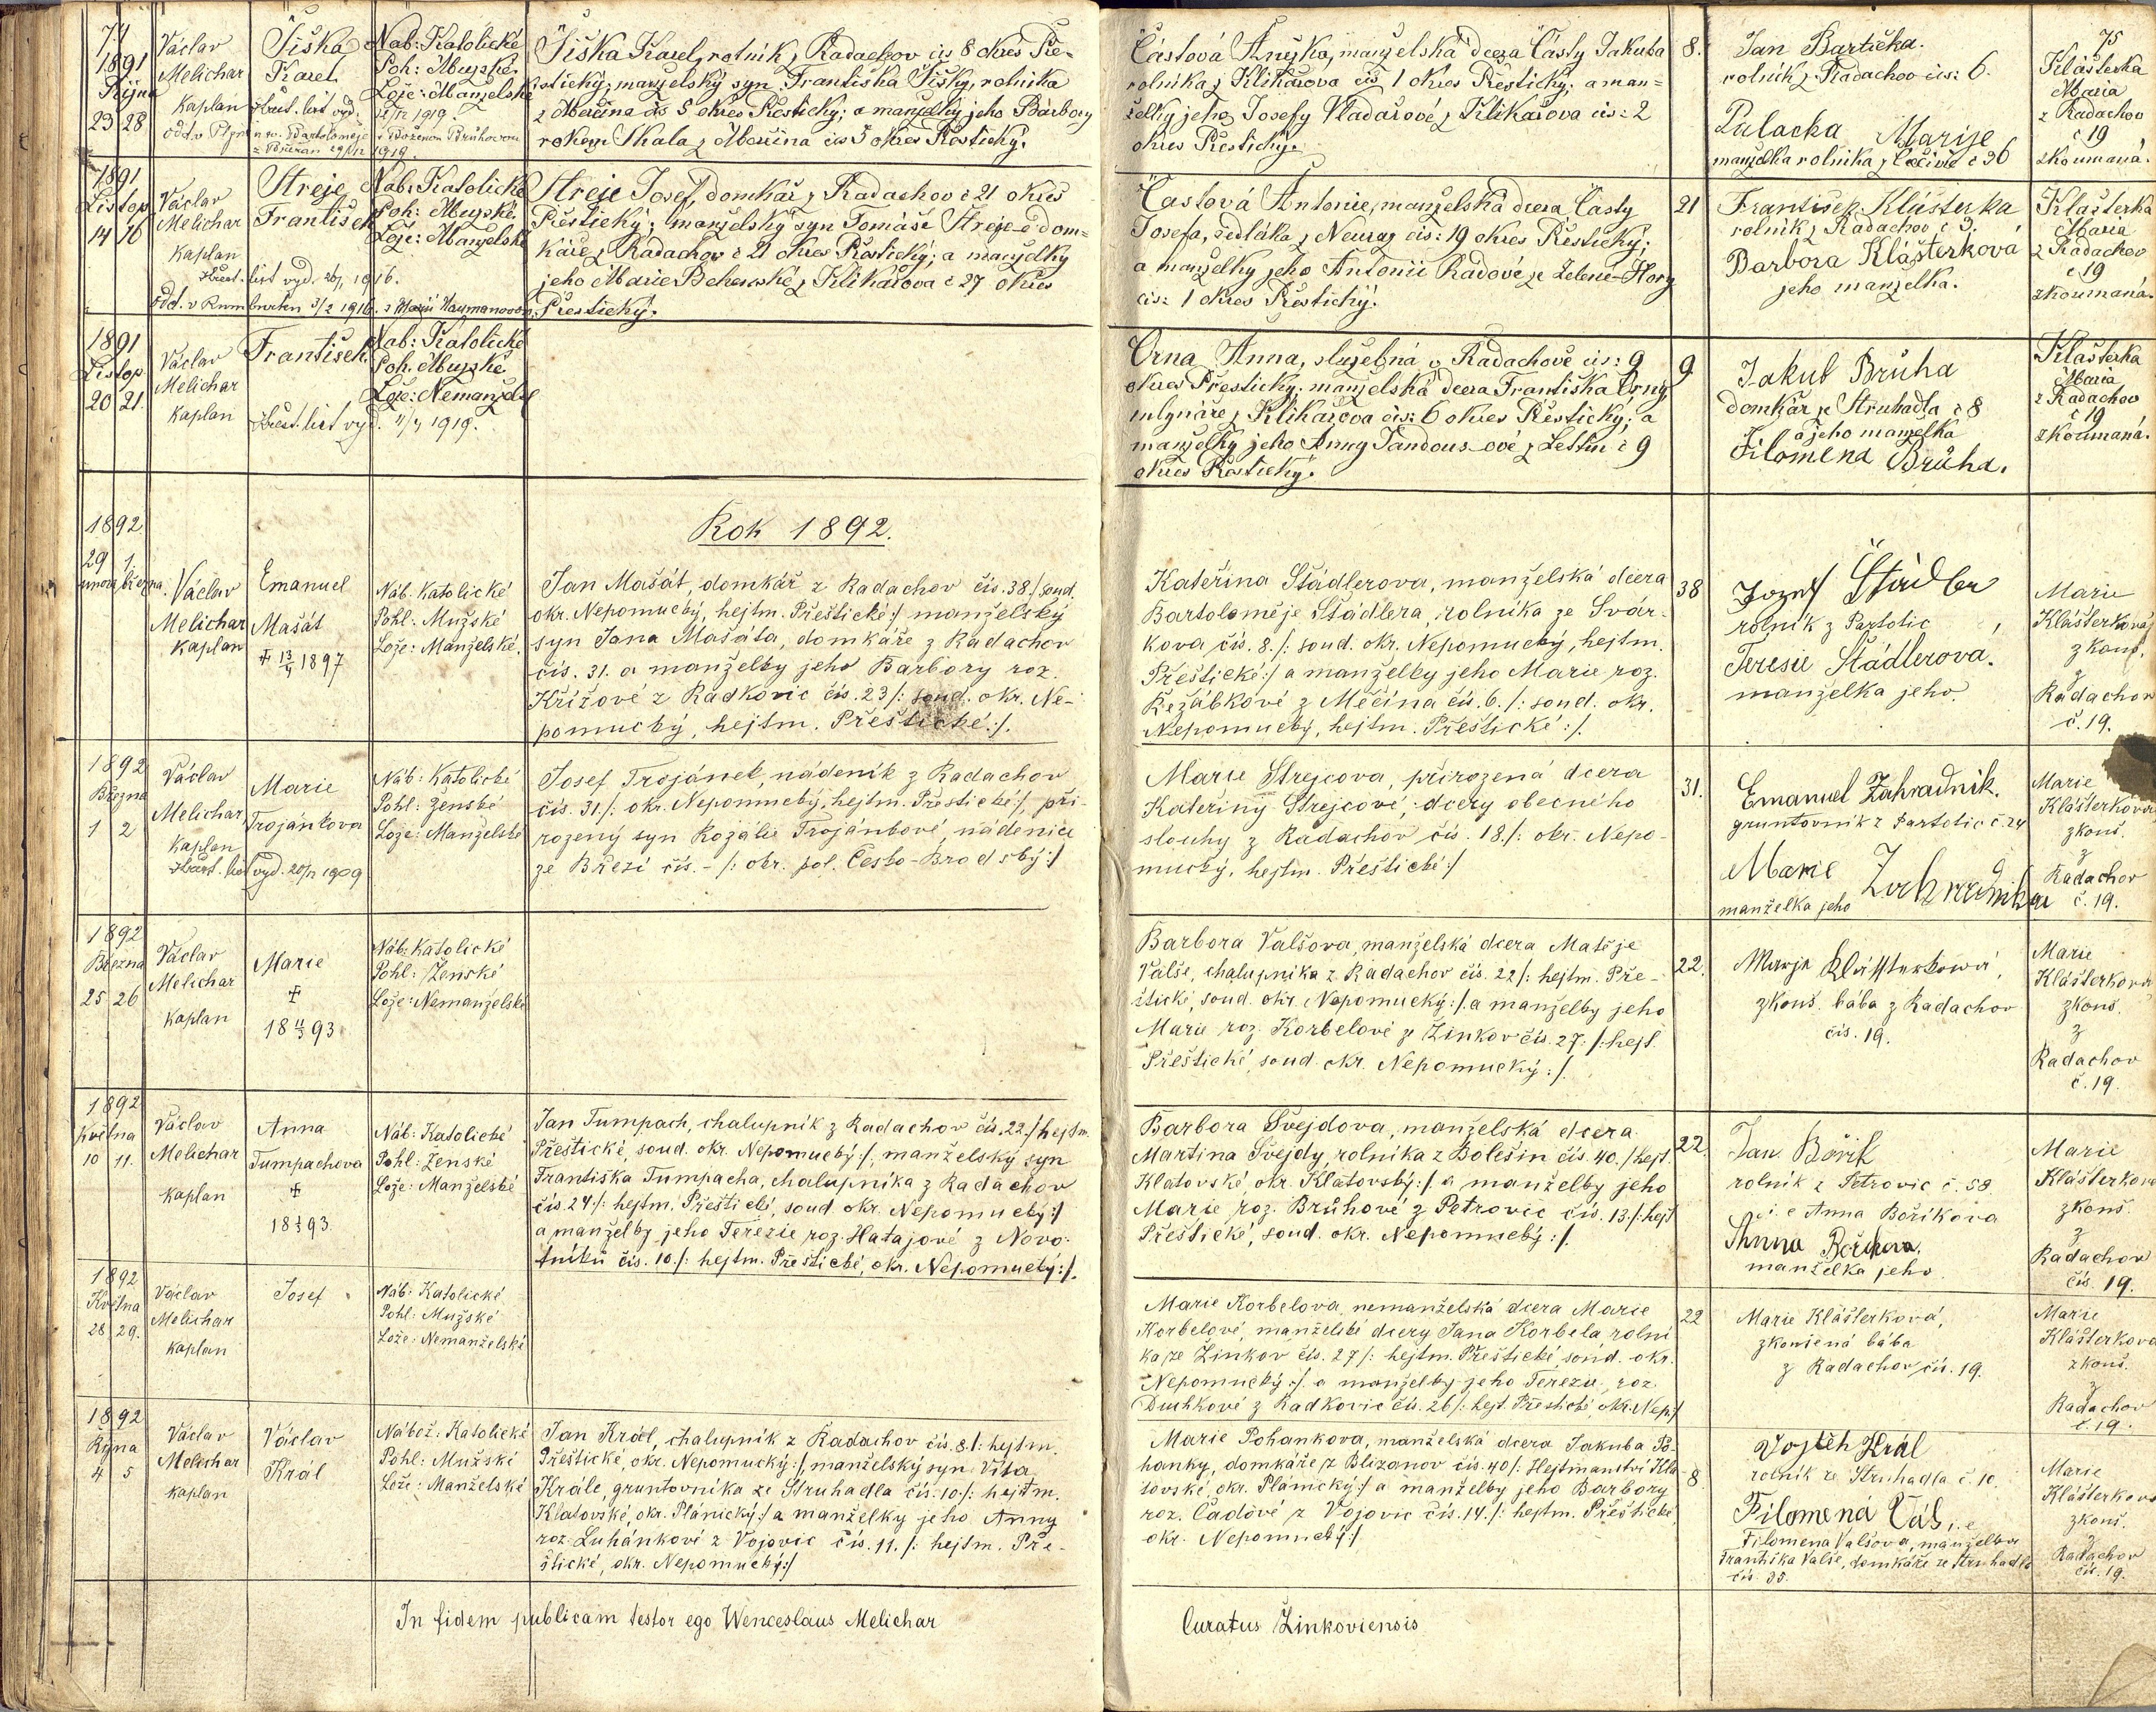 74
1891
Října
23 28
Václav
Melichar
kaplan
Šiška
Karel
Křest. list vyd.
Náb: Katolické
Poh: Mužské
Lože: Manželské
1919.
Šiška Karel, rolník z Radachov čís 8 okres Pře-
štický; manželský syn Františka Šišky, rolníka
z Měčína čís 5 okres Přeštický; a manželky jeho Barbory
rozené Skala z Měčína čís 5 okres Přeštický.
Částová Anežka, manželská dcera Částy Jakuba
rolníka z Klikařova čís 1 okres Přeštický; a man=
želky jeho Josefy Vladařové z Klikařova čís: 2
okres Přeštický.
8.
Jan Bartička.
rolník z Radachov čís: 6.
Palacka Marije
manželka rolníka č 36
75
Klášterka
Maria
z Radachov
č 19
zkoumaná.
1891
Listop
14 16
Václav
Melichar
kaplan
Streje
František
Náb: Katolické
Poh: Mužské
Lože: Manželské
Křest. list vyd. 1916.
odd. v Rumburku 3/2 1916. s Marií Naymanovou
Streje Josef, domkář z Radachov č 21 okres
Přeštický; manželský syn Tomáše Streje-e dom-
káře z Radachov č 21 okres Přeštický; a manželky
jeho Marie z Klikařova č 27 okres
Přeštický.
Častová Antonie, manželská dcera Časty
Josefa, sedláka z Neuraz čís: 19 okres Přeštický;
a manželky jeho Antonii Radové ze Zelené-Hory
čís: 1 okres Přeštický.
21
František Klášterka
rolník z Radachov č 3.
Barbora Klášterková
jeho manželka.
Klášterka
Maria
z Radachov
č 19
zkoumaná.
1891
Listop.
20 21.
Václav
Melichar
kaplan
František
Náb: Katolické
Poh. Mužské
Lože: Nemanžel
Křest. list vyd. 11/4 1919.
Črna Anna, služebná v Radachově čís: 9
okres Přeštický; manželská dcera Františka Črny
mlynáře z Klikařova čís: 6 okres Přeštický; a
manželky jeho Anny Jandous-ové z Letin č 9
okres Přeštický.
9
Jakub Brůha
domkář ze Struhadla č 8
a jeho manželka
Filomena Brůha.
Klášterka
Maria
z Radachov
č 19
zkoumaná.
Rok 1892.
1892
29 1.
února března.
Václav
Melichar
kaplan
Emanuel
Mašát
✝ 13/4 1897
Náb. Katolické
Pohl: Mužské
Lože: Manželské.
Jan Mašát, domkář z Radachov čís. 38./: soud.
okr. Nepomucký, hejtm. Přeštické:/ manželský
syn Jana Mašáta, domkáře z Radachov
čís. 31. a manželky jeho Barbory roz.
Křížové z Radkovic čís. 23/: soud. okr. Ne-
pomucký, hejtm. Přeštické:/.
Kateřina Städlerova, manželská dcera
Bartoloměje Städlera, rolníka ze Svár-
kova čís. 8./: soud. okr. Nepomucký, hejtm.
Přeštické:/ a manželky jeho Marie roz.
Řežábkové z Měčína čís. 6./: soud. okr.
Nepomucký, hejtm. Přeštické:/.
38
Jozef Städler
rolník z Partotic
Teresie Städlerova.
manželka jeho.
Marie
Klášterková
zkouš.
z
Radachov
č. 19.
1892
Března
1 2
Václav
Melichar
kaplan
Křest. list vyd. 20/1 1909
Marie
Trojánkova
Náb: Katolické
Pohl: Ženské
Lože: Manželské
Josef Trojánek, nádeník z Radachov
čís. 31./: okr. Nepomucký, hejtm. Přeštické:/, při-
rozený syn Rozálie Trojánkové, nádenice
ze Březí čís. - /: okr. pol. Česko-Brodský:/
Marie Strejcova, přirozená dcera
Kateřiny Strejcové, dcery obecního
slouhy z Radachov čís. 18./: okr. Nepo-
mucký, hejtm. Přeštické:/
31.
Emanuel Zahradnik.
gruntovník z Partotic č. 24
Marie Zahradnika
manželka jeho
Marie
Klášterková
zkouš.
z
Radachov
č. 19.
1892
Března
25 26
Václav
Melichar
kaplan
Marie
✝
18 11/3 93
Náb: Katolické
Pohl: Ženské
Lože: Nemanželské
Barbora Valšova, manželská dcera Matěje
Valše, chalupníka z Radachov čís. 22/: hejtm. Pře-
štické, soud. okr. Nepomucký:/. a manželky jeho
Marie roz. Korbelové ze Žinkov čís. 27. /: hejt.
Přeštické, soud. okr. Nepomucký:/.
22.
Marje Klášterkowá,
zkouš. bába z Radachov
čís. 19.
Marie
Klášterkova
zkouš.
z
Radachov
č. 19.
1892
Května
10 11.
Václav
Melichar
kaplan
Anna
Tumpachova
✝
Náb: Katolické
Pohl: Ženské
Lože: Manželské
Jan Tumpach, chalupník z Radachov čís. 22./: hejtm.
Přeštické, soud. okr. Nepomucký:/, manželský syn
Františka Tumpacha, chalupníka z Radachov
čís. 24/: hejtm. Přeštické, soud. okr. Nepomucký:/
a manželky jeho Terezie roz. Hatajové z Novo-
tníků čís. 10./: hejtm. Přeštické, okr. Nepomucký:/.
Barbora Švejdova, manželská dcera
Martina Švejdy, rolníka z Bolešin čís. 40./: hejt.
Klatovské, okr. Klatovský:/ a manželky jeho
Marie roz. Brůhové z Petrovic čís. 13./: hejt
Přeštické, soud. okr. Nepomucký:/.
22.
Jan Bořik
rolník z Petrovic č. 58
i. e Anna Boříkova
Anna Bořikova,
manželka jeho
Marie
Klášterkova
zkouš.
z
Radachov
čís. 19.
1892
Května
28 29.
Václav
Melichar
kaplan
Josef
Náb: Katolické
Pohl: Mužské
Lože: Nemanželské
Marie Korbelova, nemanželská dcera Marie
Korbelové, manželské dcery Jana Korbela rolní
ka ze Žinkov čís. 27/: hejtm. Přeštické, soud. okr.
Nepomucký:/. a manželky jeho Terezie, roz.
Duchkové z Radkovic čís. 26/: hejt. Přeštické, okr. Nep:/
22
Marie Klášterková,
zkoušená bába
z Radachov čís. 19.
Marie
Klášterkova
zkouš.
z
Radachov
č. 19.
1892
Října
4 5
Václav
Melichar
kaplan
Václav
Král
Nábož: Katolické
Pohl: Mužské
Lože: Manželské
Jan Král, chalupník z Radachov čís. 8./: hejtm.
Přeštické, okr. Nepomucký:/, manželský syn Víta
Krále, gruntovníka ze Struhadla čís. 10./: hejtm.
Klatovské, okr. Plánický:/ a manželky jeho Anny
roz. Luhánkové z Vojovic čís. 11. /: hejtm. Pře-
štické, okr. Nepomucký:/
Marie Pohankova, manželská dcera Jakuba Po-
hanky, domkáře z Blizanov čís. 40/: Hejtmanství Kla-
tovské, okr. Plánický:/ a manželky jeho Barbory
roz. Čadové z Vojovic čís. 14./: hejtm. Přeštické,
okr. Nepomucký:/
8
Vojtěh Král
rolník ze Struhadla č. 10.
Filomena Valš, i. e
Filomena Valšova, manželka
Františka Valše, domkáře ze Struhadla
čís 35.
Marie
Klášterkova
zkouš.
z
Radachov
čís. 19.
In fidem publicam testor ego Wenceslaus Melichar
Curatus Žinkoviensis